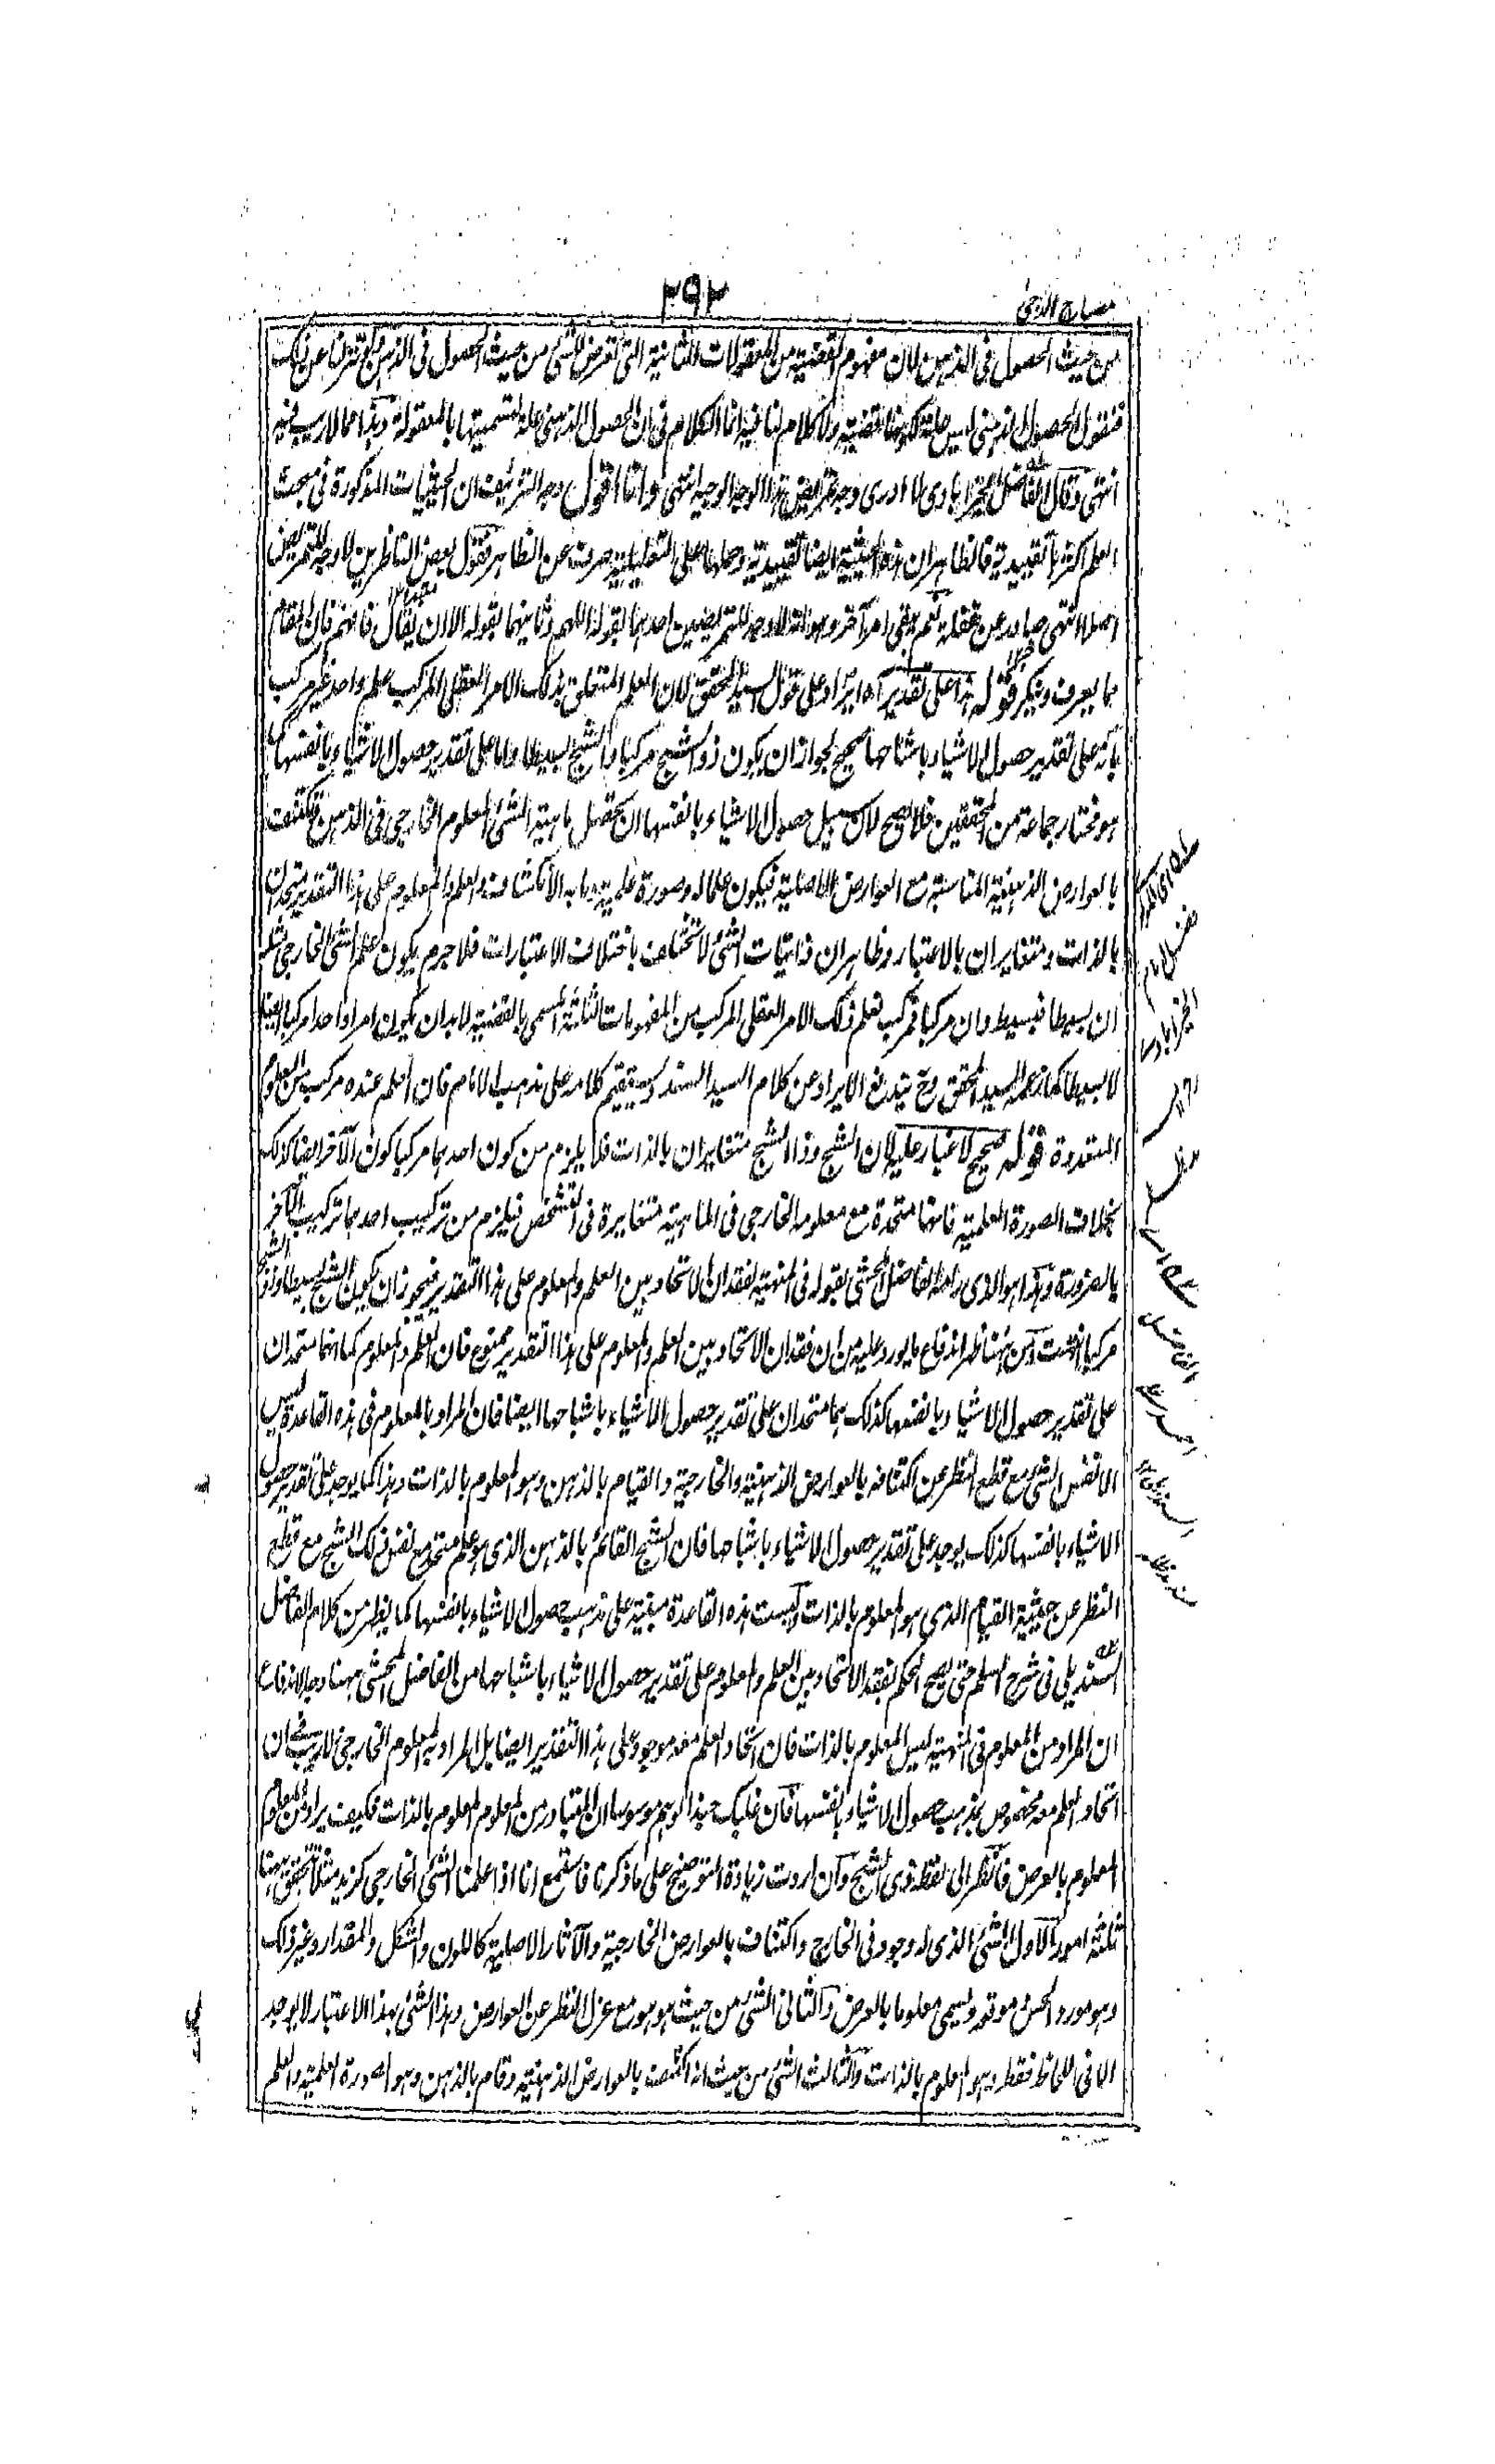 مصباح الدجى
٢٩٢
من حيث الحصول فى الذهن لان مفهوم القضية من المعقولات الثانية التى تعرض للشئ من حيث الحصول فى الذهن
فنقول الحصول الذهنى ليس علة لكونها قضية ولا كلام لنا فيه انما الكلام فى ان الحصول الذهنى علة لتسميتها بالمعقولة وهذا مما لا ريب فيه
انتهى وقال الفاضل الخيرابادى لا ادرى وجه تمريض هذا الوجه الوجيه انتهى وانا اقول وجه التزئيف ان الحيثيات المذكورة فى مبحث
العلم اكثرها تقييدية فالظاهر ان هذه الحيثية ايضا تقييدية وحملها على التعليلية صرف عن الظاهر فقول بعض الناظرين لا وجه للتمريض
اصلا انتهى صادر عن غفلة نعم بقى امر آخر وهو انه لا وجه للتمريضين احدهما بقوله اللهم وثانيهما بقوله الا ان يقال فافهم فان المقام
مما يعرف وينكر قوله هذا على تقدير آه ايراد على قول السيد المحقق لان العلم المتعلق بذلك الامر العقلى المركب علم واحد غير مركب
بانه على تقدير حصول الاشياء باشباحها صحيح لجواز ان يكون ذو الشبح مركبا والشبح بسيطا واما على تقدير حصول الاشياء بانفسها كما
هو مختار جماعة من المحققين فلا يصح لان سبيل حصول الاشياء بانفسها ان يحصل ماهية الشئ المعلوم الخارجى فى الذهن وتكتنف
بالعوارض الذهنية المناسبة مع العوارض الاصلية فيكون علما له وصورة علمية وما به الانكشاف والعلم والمعلوم على هذا التقدير متحدان
بالذات ومتغايران بالاعتبار وظاهر ان ذاتيات الشئ لا تختلف باختلاف الاعتبارات فلا جرم يكون علم الشئ الخارجى مثله
ان بسيطا فبسيط وان مركبا فمركب فعلم ذلك الامر العقلى المركب من المفهومات الثلثة المسمى بالقضية لا بد ان يكون امرا واحدا مركبا ايضا
لا بسيطا كما زعمه السيد المحقق وح يندفع الايراد عن كلام السيد السند ويستقيم كلامه على مذهب الامام فان العلم عنده مركب من العلوم
المتعددة قوله صحيح لا غبار عليه لان الشبح وذا الشبح متغايران بالذات فلا يلزم من كون احدهما مركبا كون الآخر ايضا كذلك
بخلاف الصورة العلمية فانها متحدة مع معلومه الخارجى فى الماهية متغايرة فى التشخص فيلزم من تركيب احدهما تركيب الآخر
بالضرورة وهذا هو الذى رامه الفاضل المحشى بقوله فى المنهية لفقدان الاتحاد بين العلم والمعلوم على هذا التقدير فيجوز ان يكون الشبح بسيطا وذو الشبح
مركبا انتهت ومن ههنا ظهر اندفاع ما يورد عليه من ان فقدان الاتحاد بين العلم والمعلوم على هذا التقدير ممنوع فان العلم والمعلوم كما انهما متحدان
على تقدير حصول الاشياء بانفسها كذلك هما متحدان على تقدير حصول الاشياء باشباحها ايضا فان المراد بالمعلوم فى هذه القاعدة ليس
الا نفس الشئ مع قطع النظر عن اكتنافه بالعوارض الذهنية والخارجية والقيام بالذهن وهو المعلوم بالذات وهذا كما يوجد على تقدير حصول
الاشياء بانفسها كذلك يوجد على تقدير حصول الاشياء باشباحها فان الشبح القائم بالذهن الذى هو علم متحد مع نفس ذلك الشبح مع قطع
النظر عن حيثية القيام الذى هو المعلوم بالذات وليست هذه القاعدة مبنية على مذهب حصول الاشياء بانفسها كما يظهر من كلام الفاضل
السنديلى فى شرح السلم حتى يصح الحكم بفقد الاتحاد بين العلم والمعلوم على تقدير حصول الاشياء باشباحها من الفاضل المحشى ههنا وجه الاندفاع
ان المراد من المعلوم فى المنهية ليس المعلوم بالذات فان اتحاد العلم معه موجود على هذا التقدير ايضا بل المراد به المعلوم الخارجى لا ريب فى ان
اتحاد العلم معه مخصوص بمذهب حصول الاشياء بانفسها فان غلبك حينئذ الوهم موسوسا ان المتبادر من المعلوم المعلوم بالذات فكيف يراد من المعلوم
المعلوم بالعرض فانظر الى لفظ ذى الشبح وان اردت زيادة التوضيح على ما ذكرنا فاستمع انا اذا علمنا الشئ الخارجى كزيد مثلا تتحقق ههنا
ثلثة امور الاول الشئ الذى له وجود فى الخارج واكتناف بالعوارض الخارجية والآثار الاصلية كاللون والشكل والمقدار وغير ذلك
وهو مورد الحس وموقعه ويسمى معلوما بالعرض والثانى الشئ من حيث هو هو مع عزل النظر عن العوارض وهذا الشئ بهذا الاعتبار لا يوجد
الا فى اللحاظ فقط وهو المعلوم بالذات والثالث الشئ من حيث انه اكتنفت بالعوارض الذهنية وقام بالذهن وهو الصورة العلمية والعلم
فضل امام
الخيرابادى